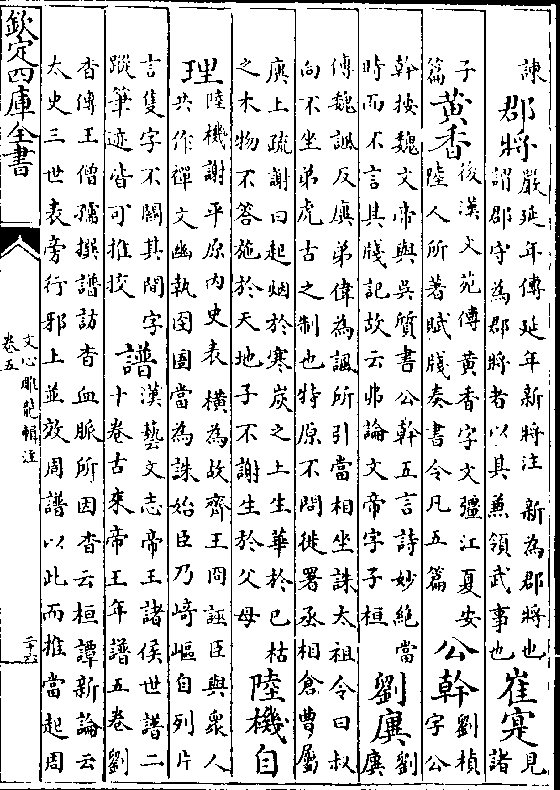 諫郡將嚴延年傳延年新將注 新為郡將也謂郡守為郡將者以其兼領武事也崔寔見諸
子篇黄香後漢文苑傳黄香字文彊江夏安陸人所著賦牋奏書令凡五篇公幹劉楨字公
幹按魏文帝與吳質書公幹五言詩妙絶當時而不言其牋記故云弗論文帝字子桓劉廙劉廙
傳魏諷反廙弟偉為諷所引當相坐誅太祖令曰叔向不坐弟虎古之制也特原不問徙署丞相倉曹屬
廙上疏謝曰起烟於寒炭之上生華於已枯之木物不答施於天地子不謝生於父母陸機自
理陸機謝平原内史表 橫為故齊王冏誣臣與衆人共作禪文幽執囹圄當為誅始臣乃崎嶇自列片
言隻字不關其間字蹤筆迹皆可推挍譜漢藝文志帝王諸侯世譜二十卷古來帝王年譜五卷劉
杳傳王僧孺撰譜訪杳血脈所因杳云桓譚新論云太史三世表旁行邪上並效周譜以此而推當起周
欽定四庫全書
文心雕龍輯注
卷五
二十六